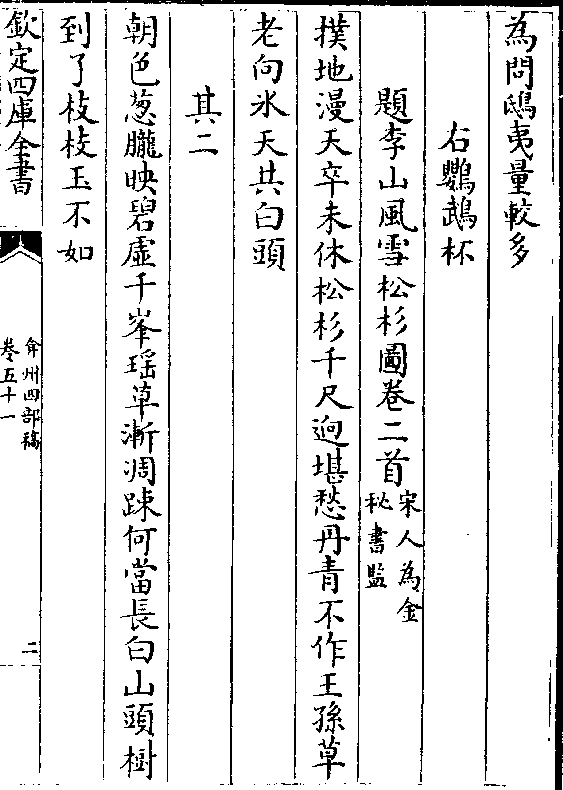 為問鴟夷量較多
右鸚鵡杯
題李山風雪松杉圖卷二首宋人為金
秘書監
撲地漫天卒未休松杉千尺逈堪愁丹青不作王孫草
老向氷天共白頭
其二
朝色葱朧映碧虛千峯瑶草漸凋踈何當長白山頭樹
到了枝枝玉不如
欽定四庫全書
弇州四部稿
卷五十一
二